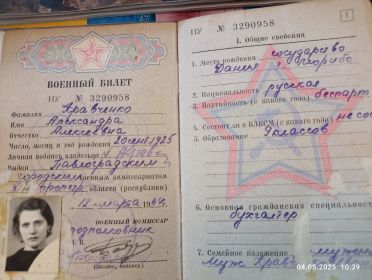 ВОЕННЫЙ БИЛЕТ
НУ № 3290958
Фамилия Кравченко
Имя Александра
Отчество Алексеевна
Число, месяц и год рождения 20 1926
Личная подпись владельца
Выдан Павлоградским
городским военным комиссариатом
области (республики)
12 марта 1964
ВОЕННЫЙ КОМИССАР
подполковник
НУ № 3290958
1
I. Общие сведения
1. Место рождения государство
Дания г.
2. Национальность русская
3. Партийность (с какого года) беспарт
4. Состоит ли в ВЛКСМ (с какого года) не сос
5. Образование 9 классов
6. Основная гражданская специальность
бухгалтер
7. Семейное положение
муж Кравч
04.05.2025 10:39